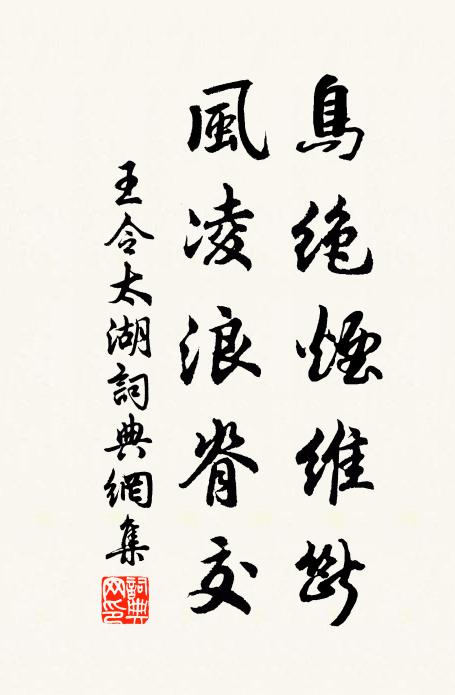 鳥絶煙維斷
風凌浪脊交
王令太湖詞典網集
詞典網印